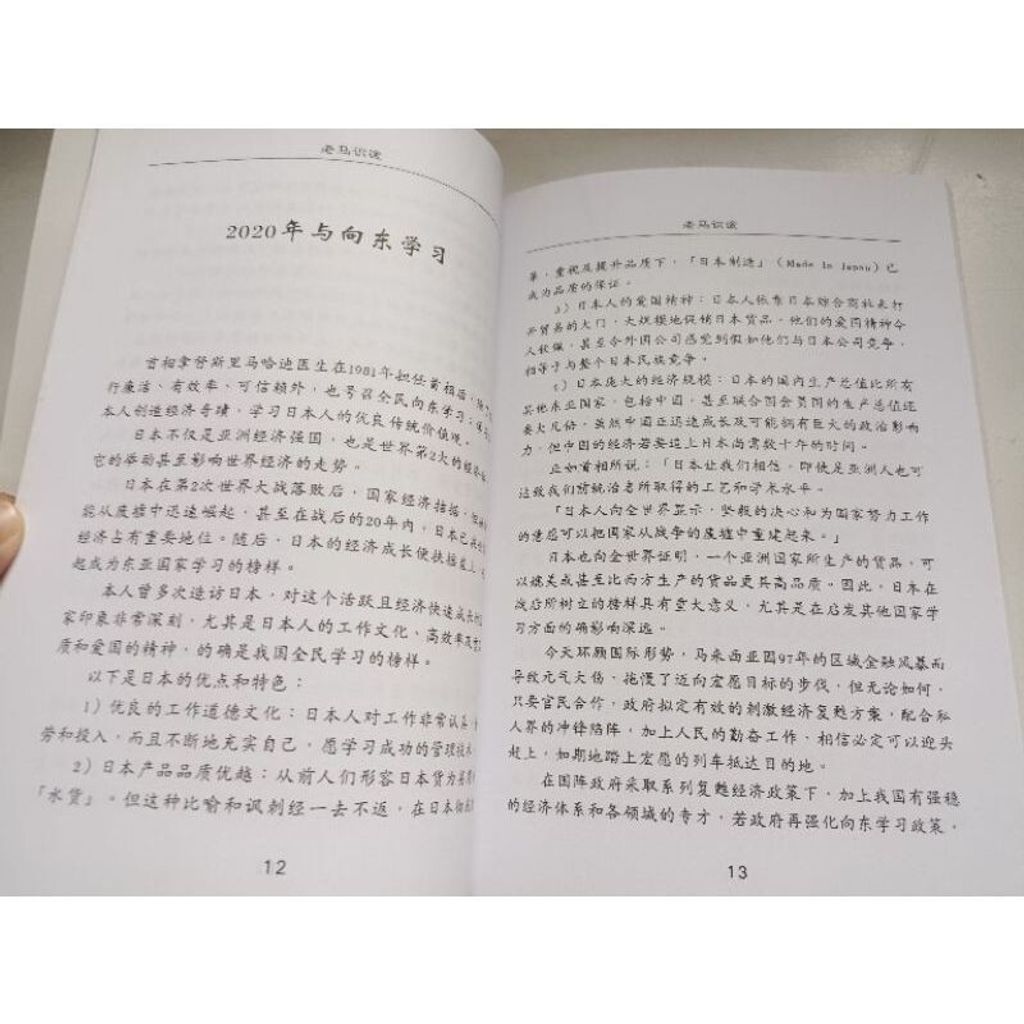 老马识途
2020年与向东学习
首相拿督斯里马哈迪医生在1981年担任首相后，
行廉洁、有效率、可信赖外，也号召全民向东学习：
本人创造经济奇迹，学习日本人的优良传统价值观。
日本不仅是亚洲经济强国，也是世界第2大的经济
它的举动甚至影响世界经济的走势。
日本在第2次世界大战落败后，国家经济拮据，
能从废墟中迅速崛起，甚至在战后的20年内，日本已
经济占有重要地位。随后，日本的经济成长便扶摇直上，
起成为东亚国家学习的榜样。
本人曾多次造访日本，对这个活跃且经济快速成长的
家印象非常深刻，尤其是日本人的工作文化、高效率及
质和爱国的精神，的确是我国全民学习的榜样。
以下是日本的优点和特色：
1）优良的工作道德文化：日本人对工作非常认真、
劳和投入，而且不断地充实自己，愿学习成功的管理技术
2）日本产品品质优越：从前人们形容日本货为
「水货」。但这种比喻和讽刺经一去不返，在日本
12
老马识途
革，重视及提升品质下，「日本制造」（Made In Japan）已
成为品质的保证。
3）日本人的爱国精神：日本人依靠日本综合商社来打
开贸易的大门，大规模地促销日本货品。他们的爱国精神令
人钦佩，甚至令外国公司感觉到假如他们与日本公司竞争，
相等于与整个日本民族竞争。
4）日本庞大的经济规模：日本的国内生产总值比所有
其他东亚国家，包括中国，甚至联合国会员国的生产总值还
要大几倍。虽然中国正迅速成长及可能拥有巨大的政治影响
力，但中国的经济若要追上日本尚需数十年的时间。
正如首相所说：「日本让我们相信，即使是亚洲人也可
达致我们前统治者所取得的工艺和学术水平。
「日本人向全世界显示，坚毅的决心和为国家努力工作
的意愿可以把国家从战争的废墟中重建起来。」
日本也向全世界证明，一个亚洲国家所生产的货品，可
以媲美或甚至比西方生产的货品更具高品质。因此，日本在
战后所树立的榜样具有重大意义，尤其是在启发其他国家学
习方面的确影响深远。
今天环顾国际形势，马来西亚因97年的区域金融风暴而
导致元气大伤，拖慢了迈向宏愿目标的步伐，但无论如何，
只要官民合作，政府拟定有效的刺激经济复甦方案，配合私
人界的冲锋陷阵，加上人民的勤奋工作，相信必定可以迎头
赶上，如期地踏上宏愿的列车抵达目的地。
在国阵政府采取系列复甦经济政策下，加上我国有强稳
的经济体系和各领域的专才，若政府再强化向东学习政策，
13